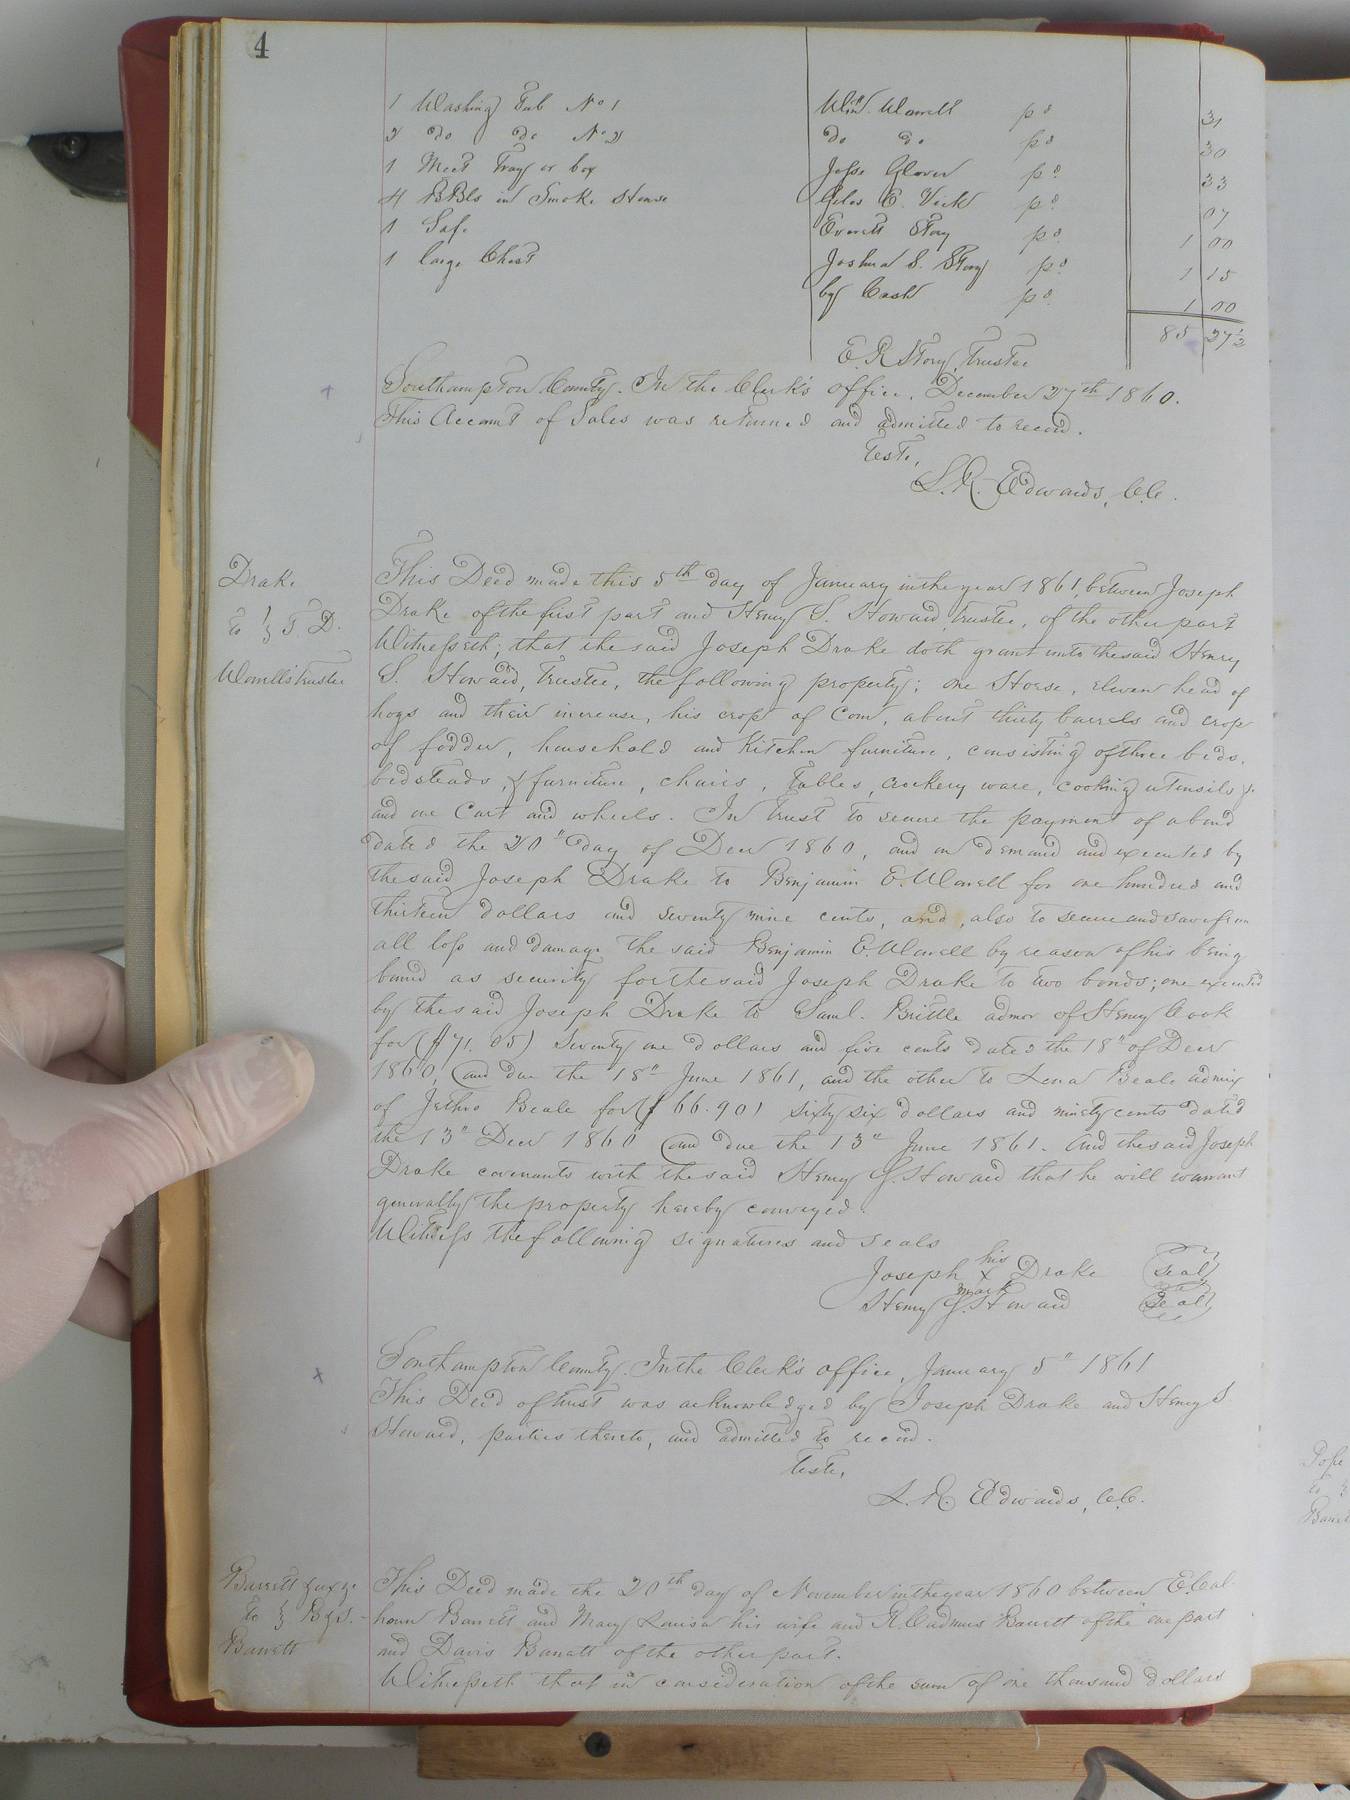 4
1 Washing Tub No 1 Wm. Womell pd 31
2 do do No 2 do do pd 30
1 Meet Tray or box Jesse Glover pd 33
4 BBls in Smoke House Giles E. Vick pd 07
1 Safe Everett Story pd 1 00
1 large Chest Joshua S. Story pd 1 15
by Cash pd 1 00
85 27½
E. R Story, Trustee
Southampton County. In the Clerk's office, December 27th 1860.
This Account of Sales was returned and admitted to record.
Teste,
L. R. Edwards, C.C.
Drake
to } T. D.
Womell's Trustee
This Deed made this 5th day of January in the year 1861, between Joseph
Drake of the first part and Henry S. Howard, Trustee, of the other part
Witnesseth; that the said Joseph Drake doth grant unto the said Henry
S. Howard, Trustee, the following property; one Horse, eleven head of
hogs and their increase, his crop of corn, about thirty barrels and crop
of fodder, household and Kitchen furniture, consisting of three beds,
bedsteads, & furniture, chairs, Tables, crockery ware, cooking utensils &c
and one Cart and wheels. In trust to secure the payment of a bond
dated the 20" day of Decr 1860, and on demand and executed by
the said Joseph Drake to Benjamin E. Womell for one hundred and
thirteen dollars and seventy nine cents, and, also to secure and save from
all loss and damage the said Benjamin E. Womell by reason of his being
bound as security for the said Joseph Drake to two bonds; one executed
by the said Joseph Drake to Saml. Brittle admor of Henry Cook
for ($71.05) Seventy one dollars and five cents dated the 18" of Decr
1860, and due the 18" June 1861, and the other to Lena Beale admix
of Jethro Beale for ($66.90) sixty six dollars and ninety cents dated
the 13" Decr 1860 and due the 13" June 1861. And the said Joseph
Drake covenants with the said Henry S. Howard that he will warrant
generally the property hereby conveyed.
Witness the following signatures and seals
his
Joseph x Drake Seal
mark
Henry S. Howard Seal
Southampton County. In the Clerk's office, January 5" 1861
This Deed of trust was acknowledged by Joseph Drake and Henry S
Howard, parties thereto, and admitted to record.
Teste,
L. R. Edwards, C.C.
Barrett & ux &c
to } B & S.
Barrett
This Deed made the 20th day of November in the year 1860 between E. Cal
houn Barrett and Mary Louisa his wife and R. Cadmus Barrett of the one part
and Davis Barrett of the other part.
Witnesseth that in consideration of the sum of one thousand dollars
Pope
to }